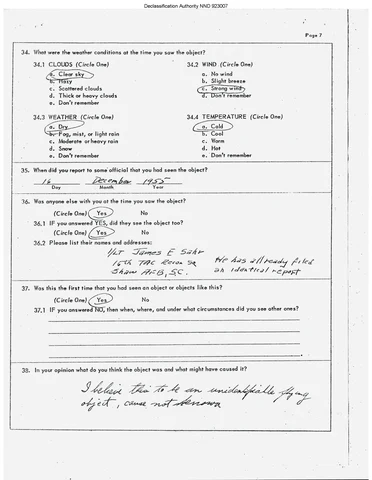 Declassification Authority NND 923007
Page 7
34. What were the weather conditions at the time you saw the object?
34.1 CLOUDS (Circle One)
a. Clear sky
b. Hazy
c. Scattered clouds
d. Thick or heavy clouds
e. Don't remember
34.2 WIND (Circle One)
a. No wind
b. Slight breeze
c. Strong wind
d. Don't remember
34.3 WEATHER (Circle One)
a. Dry
b. Fog, mist, or light rain
c. Moderate or heavy rain
d. Snow
e. Don't remember
34.4 TEMPERATURE (Circle One)
a. Cold
b. Cool
c. Warm
d. Hot
e. Don't remember
35. When did you report to some official that you had seen the object?
16 December 1955
Day Month Year
36. Was anyone else with you at the time you saw the object?
(Circle One) Yes No
36.1 IF you answered YES, did they see the object too?
(Circle One) Yes No
36.2 Please list their names and addresses:
1/LT James E Sahr
16th TAC Recon Sq
Shaw AFB, S.C.
He has allready filed
an identical report
37. Was this the first time that you had seen an object or objects like this?
(Circle One) Yes No
37.1 IF you answered NO, then when, where, and under what circumstances did you see other ones?
38. In your opinion what do you think the object was and what might have caused it?
I believe this to be an unidentifiable flying
object, cause not known